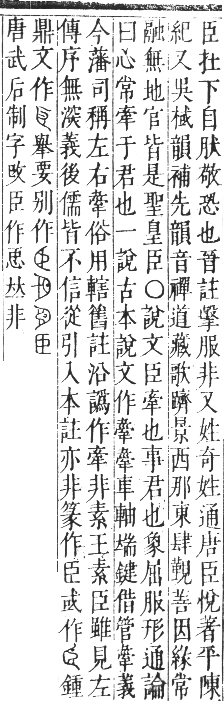 臣在下自肰敬恐也晉註擊服非又姓奇姓通唐臣悅者平陳
紀又吳棫韻補先韻音禪道藏歌躋景西那東肆觀善因緣常
融無地官皆是聖皇臣〇說文臣牽也事君也象屈服形通論
曰心常牽于君也一說古本說文作牽牽車軸耑鍵借管牽義
今藩司稱左右牽俗用轄舊註沿譌作牽非素王素臣雖見左
傳序無深義後儒皆不信從引入本註亦非篆作臣或作鍾
鼎文作擧要别作臣
唐武后制字改臣作恖𡘋非